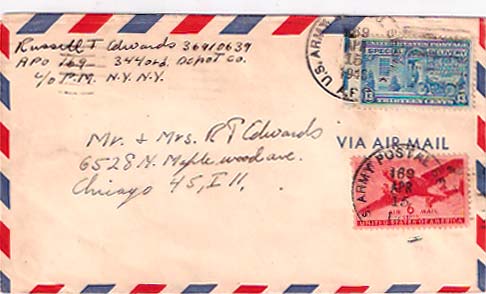 Russell T Edwards 36910639
APO 169 344 Ord. Depot Co.
c/o P.M. N.Y. N.Y.
U.S. ARMY
169
APR
15
UNITED STATES POSTAGE
SPECIAL DELIVERY
13 THIRTEEN CENTS 13
Mr. & Mrs. R T Edwards
6528 N. Maplewood ave.
Chicago 45, Ill,
VIA AIR MAIL
U.S. ARMY POSTAL
169
APR
15
AIR 6 MAIL
UNITED STATES OF AMERICA